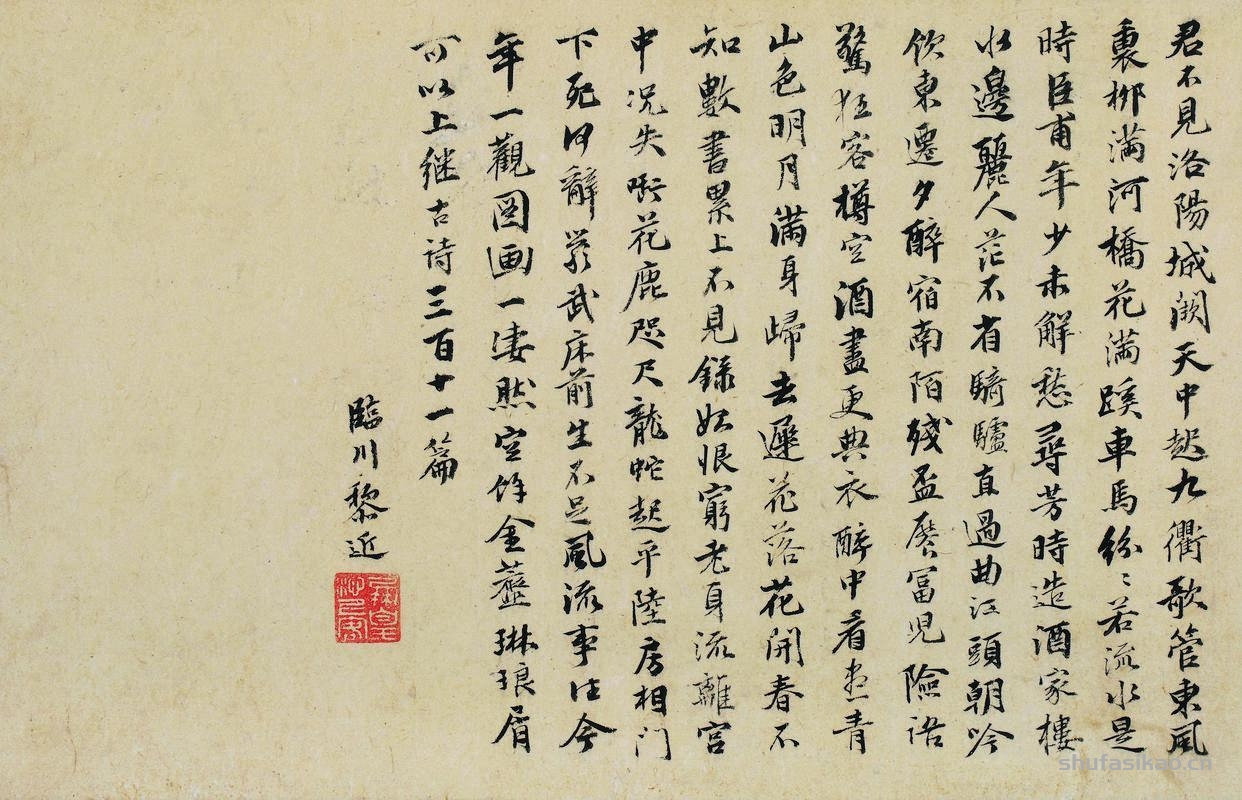 君不見洛陽城闕天中起九衢歌管東風
裏柳滿河橋花滿蹊車馬紛〻若流水是
時臣甫年少未解愁尋芳時造酒家樓
水邊麗人茫不省騎驢直過曲江頭朝吟
飲東遷夕醉宿南陌殘盃饜富児險語
驚狂客樽空酒盡更典衣醉中看畫青
山色明月滿身歸去遲花落花開春不
知數書累上不見錄始恨窮老身流離宮
中况失啣花鹿咫尺龍蛇起平陸房相門
下死何辭嚴武床前生不足風流事往今
年一觀图画一凄然空餘金薤琳琅屑
可以上继古诗三百十一篇
臨川黎近
shufasikao.cn